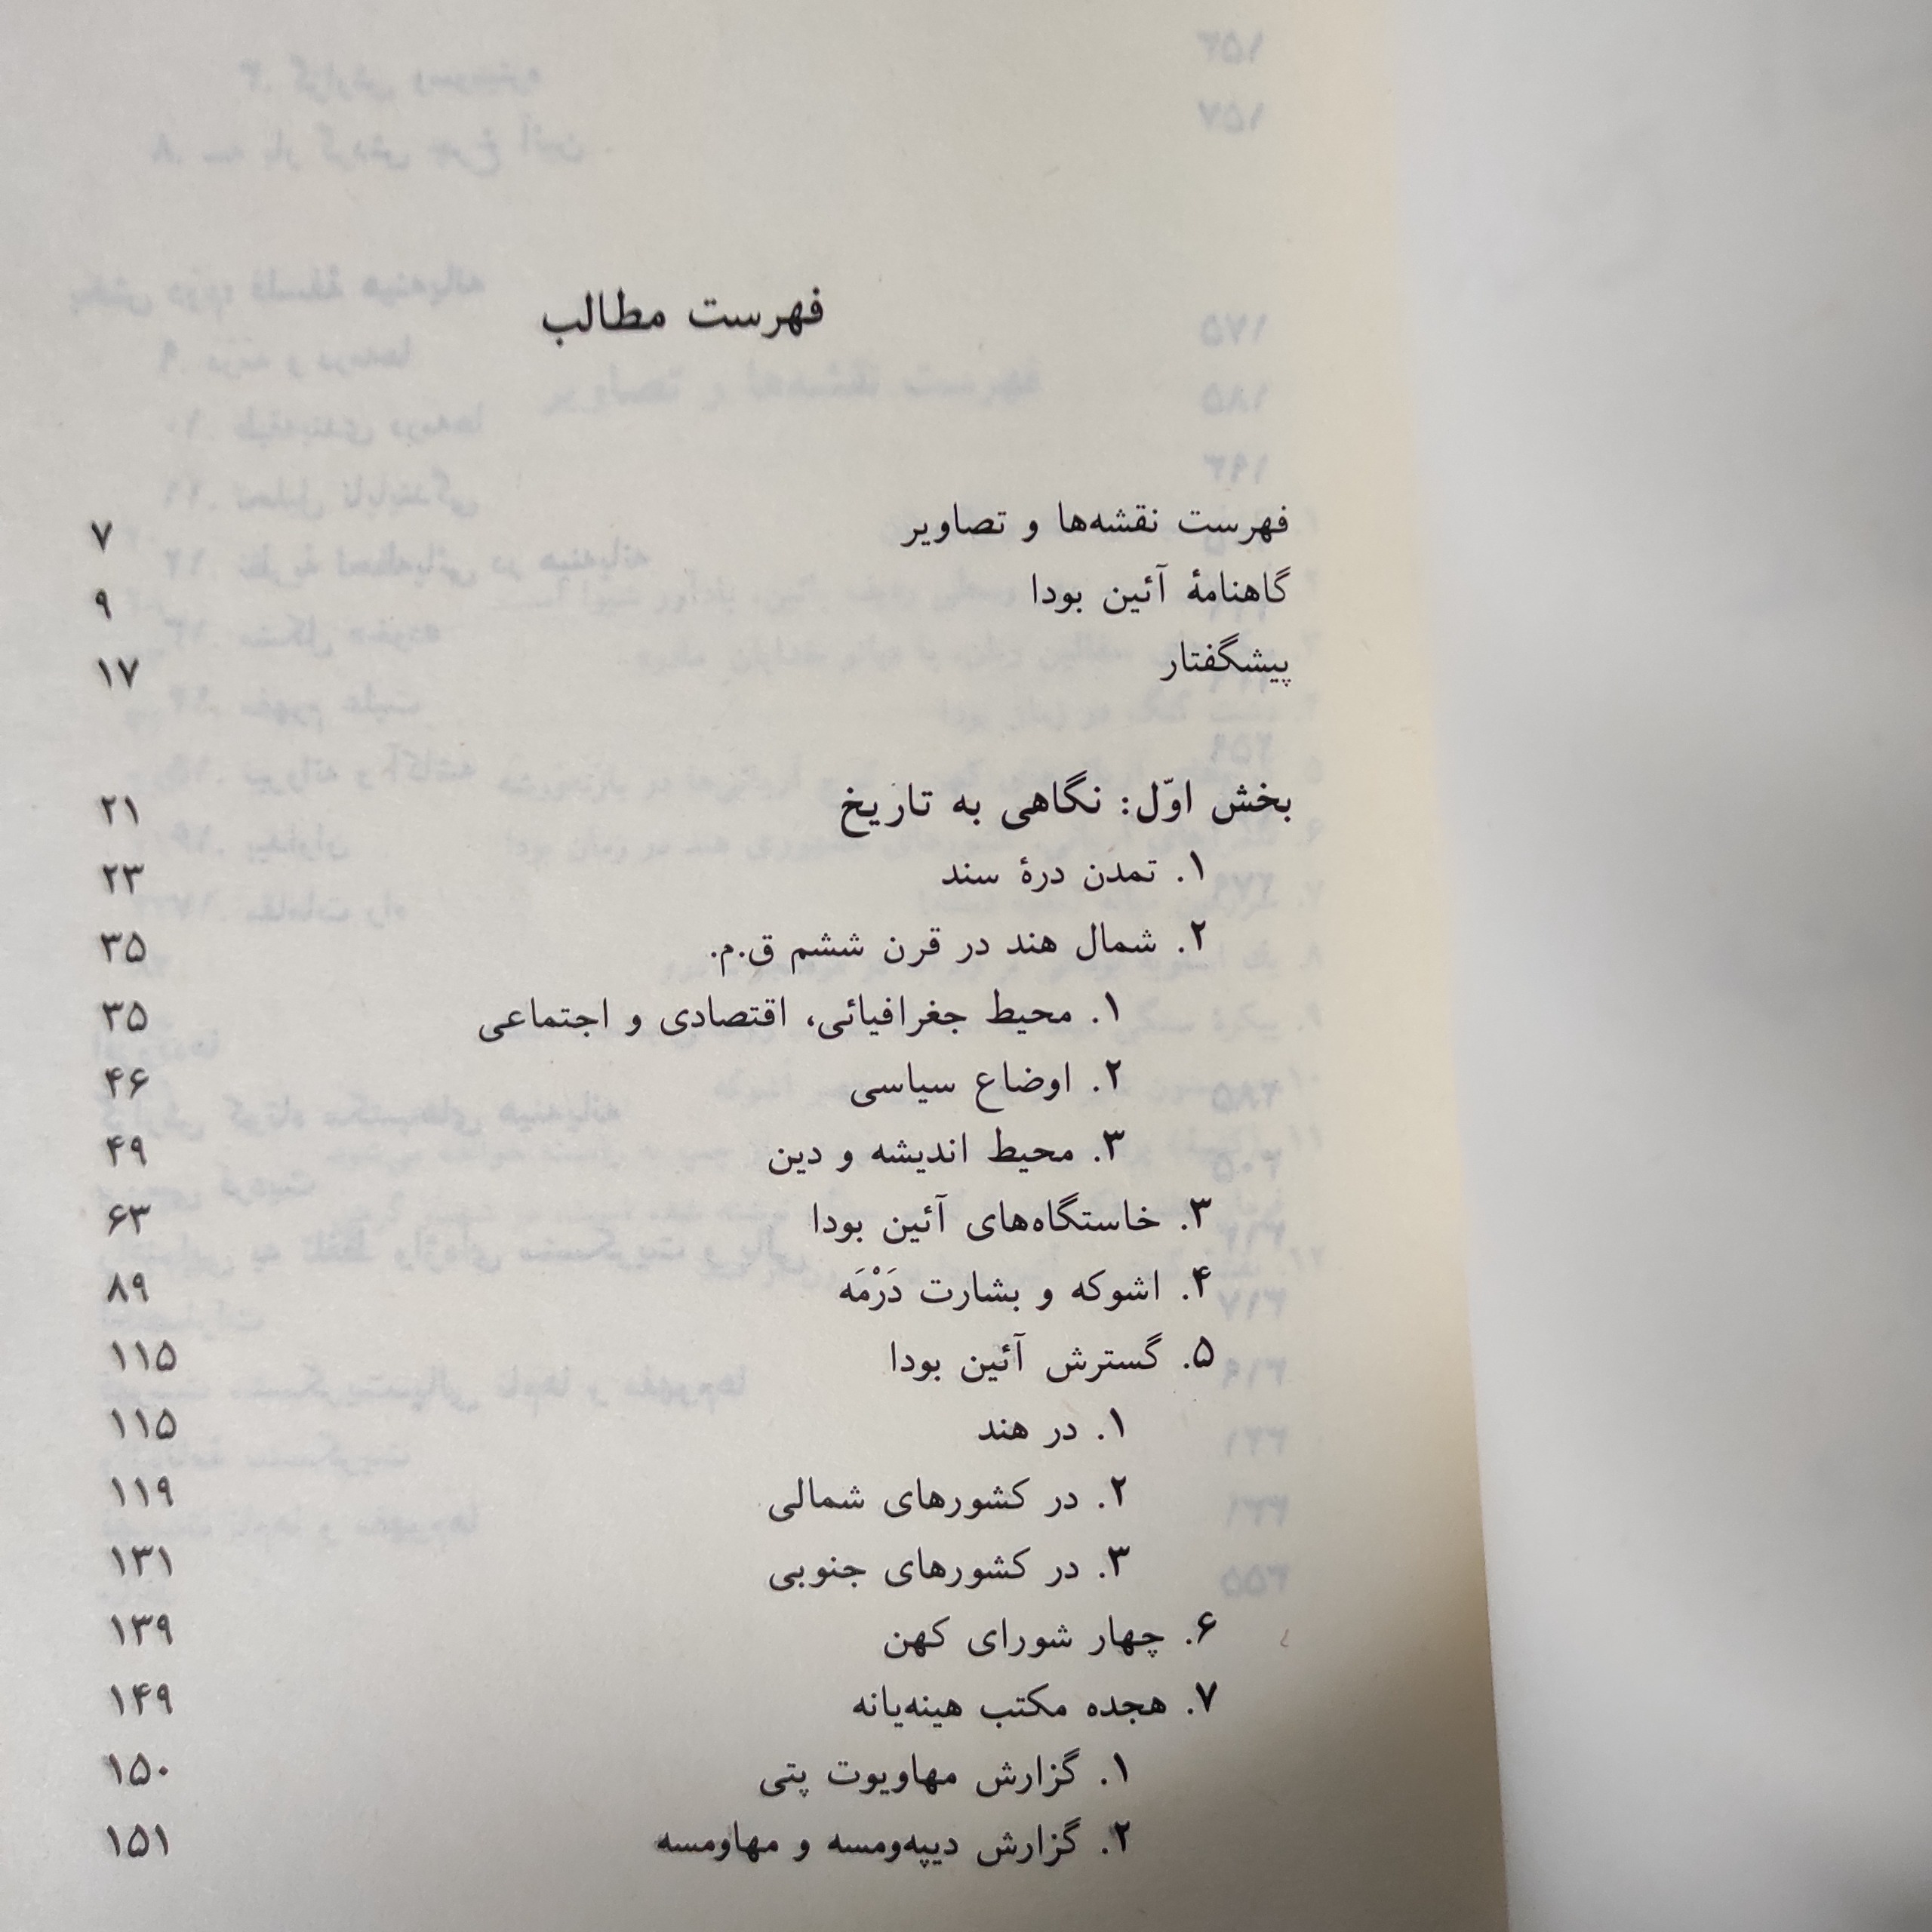 فهرست مطالب
فهرست نقشه‌ها و تصاویر ۷
گاهنامهٔ آئین بودا ۹
پیشگفتار ۱۷
بخش اوّل: نگاهی به تاریخ ۲۱
۱. تمدن درهٔ سند ۲۳
۲. شمال هند در قرن ششم ق.م. ۳۵
۱. محیط جغرافیائی، اقتصادی و اجتماعی ۳۵
۲. اوضاع سیاسی ۴۶
۳. محیط اندیشه و دین ۴۹
۳. خاستگاه‌های آئین بودا ۶۳
۴. اشوکه و بشارت دَرْمَه ۸۹
۵. گسترش آئین بودا ۱۱۵
۱. در هند ۱۱۵
۲. در کشورهای شمالی ۱۱۹
۳. در کشورهای جنوبی ۱۳۱
۶. چهار شورای کهن ۱۳۹
۷. هجده مکتب هینه‌یانه ۱۴۹
۱. گزارش مهاویوت پتی ۱۵۰
۲. گزارش دیپه‌ومسه و مهاومسه ۱۵۱